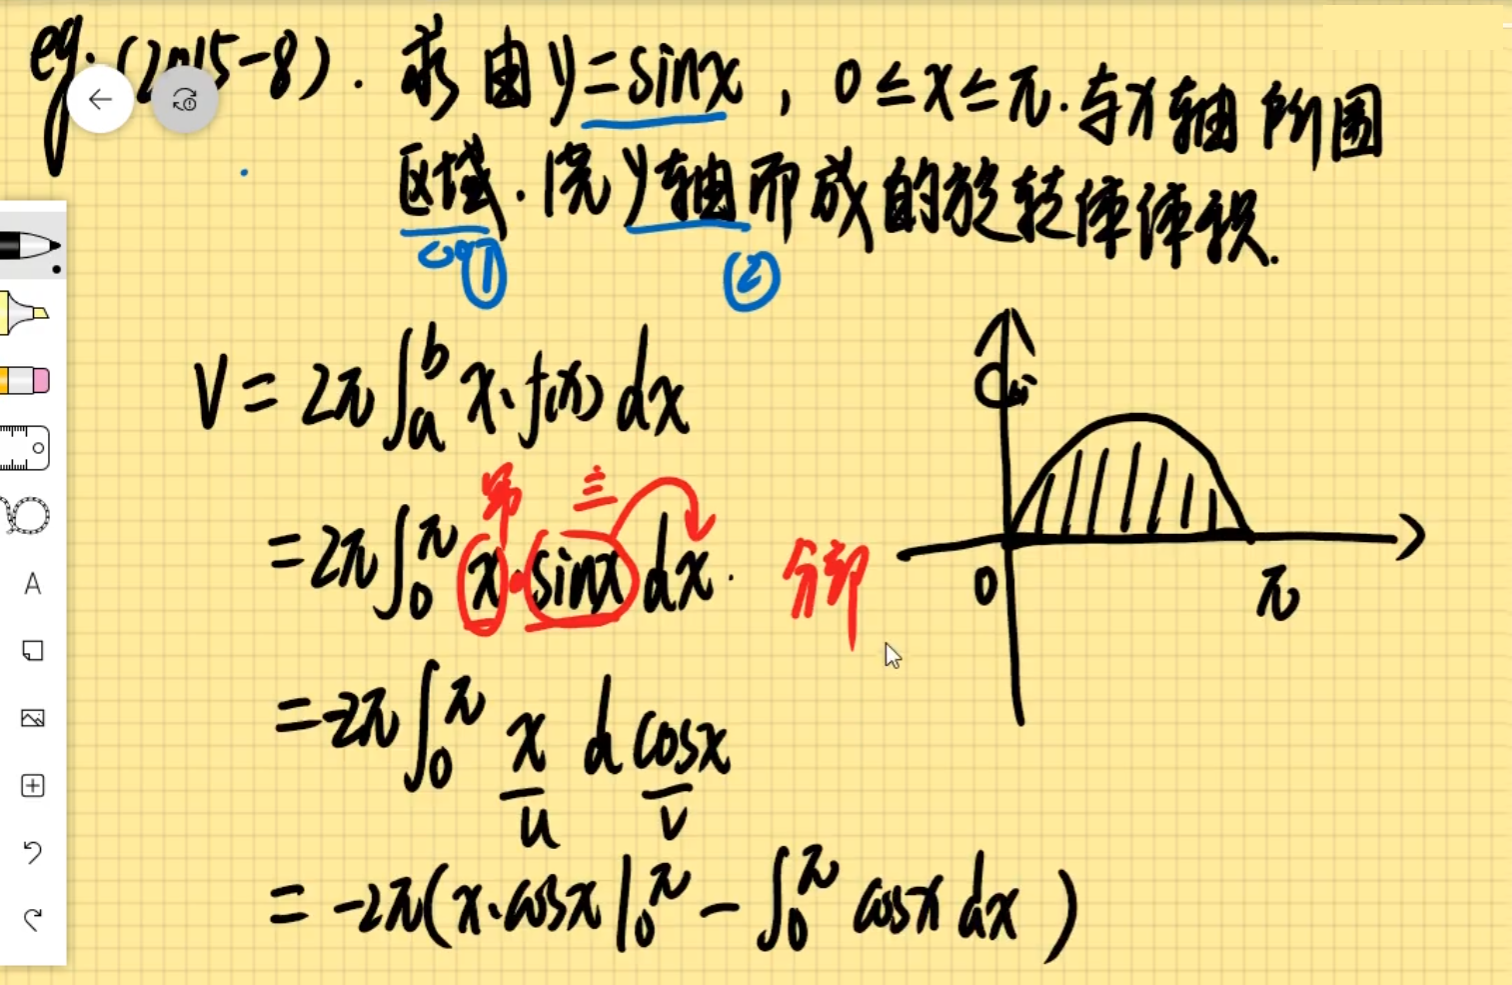 eg. (2015-8). 求由y=sinx, 0≤x≤π.与x轴所围
区域.绕y轴而成的旋转体体积.
① ②
V = 2π∫_a^b x·f(x) dx
幂 三
= 2π∫_0^π x·sinx dx. 分部
= -2π∫_0^π x d cosx
u v
= -2π(x·cosx|_0^π - ∫_0^π cosx dx)
0 π
A